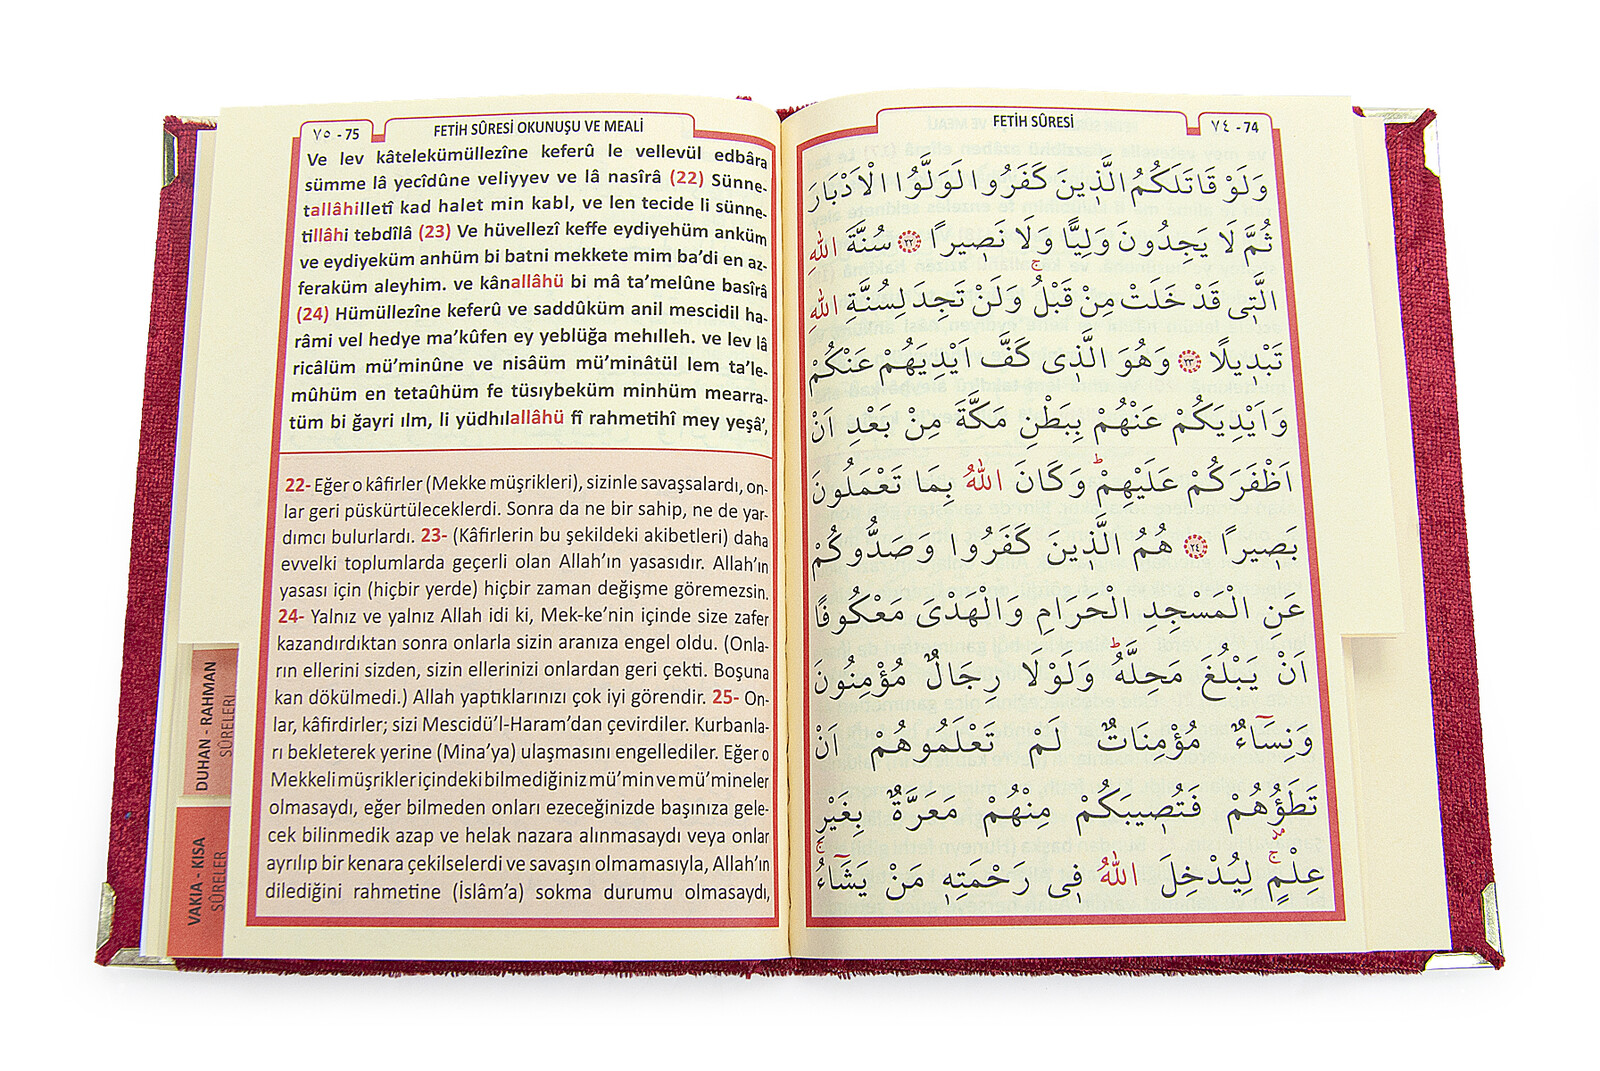 ٧٥ - 75
FETİH SÛRESİ OKUNUŞU VE MEALİ
Ve lev kâtelekümüllezîne keferû le vellevül edbâra
sümme lâ yecîdûne veliyyev ve lâ nasîrâ (22) Sünne-
tallâhilletî kad halet min kabl, ve len tecide li sünne-
tillâhi tebdîlâ (23) Ve hüvellezî keffe eydiyehüm anküm
ve eydiyeküm anhüm bi batni mekkete mim ba’di en az-
feraküm aleyhim. ve kânallâhü bi mâ ta’melûne basîrâ
(24) Hümüllezîne keferû ve saddûküm anil mescidil ha-
râmi vel hedye ma’kûfen ey yeblüğa mehılleh. ve lev lâ
ricâlüm mü’minûne ve nisâüm mü’minâtül lem ta’le-
mûhüm en tetaûhüm fe tüsıybeküm minhüm mearra-
tüm bi ğayri ılm, li yüdhılallâhü fî rahmetihî mey yeşâ’,
22- Eğer o kâfirler (Mekke müşrikleri), sizinle savaşsalardı, on-
lar geri püskürtüleceklerdi. Sonra da ne bir sahip, ne de yar-
dımcı bulurlardı. 23- (Kâfirlerin bu şekildeki akibetleri) daha
evvelki toplumlarda geçerli olan Allah’ın yasasıdır. Allah’ın
yasası için (hiçbir yerde) hiçbir zaman değişme göremezsin.
24- Yalnız ve yalnız Allah idi ki, Mek-ke’nin içinde size zafer
kazandırdıktan sonra onlarla sizin aranıza engel oldu. (Onla-
rın ellerini sizden, sizin ellerinizi onlardan geri çekti. Boşuna
kan dökülmedi.) Allah yaptıklarınızı çok iyi görendir. 25- On-
lar, kâfirdirler; sizi Mescidü’l-Haram’dan çevirdiler. Kurbanla-
rı bekleterek yerine (Mina’ya) ulaşmasını engellediler. Eğer o
Mekkeli müşrikler içindeki bilmediğiniz mü’min ve mü’mineler
olmasaydı, eğer bilmeden onları ezeceğinizde başınıza gele-
cek bilinmedik azap ve helak nazara alınmasaydı veya onlar
ayrılıp bir kenara çekilselerdi ve savaşın olmamasıyla, Allah’ın
dilediğini rahmetine (İslâm’a) sokma durumu olmasaydı,
DUHAN - RAHMAN
SÛRELERİ
VAKIA - KISA
SÛRELER
FETİH SÛRESİ
٧٤ - 74
وَلَوْ قَاتَلَكُمُ الَّذ۪ينَ كَفَرُوا لَوَلَّوُا الْاَدْبَارَ
ثُمَّ لَا يَجِدُونَ وَلِيًّا وَلَا نَص۪يرًا ﴿٢٢﴾ سُنَّةَ اللّٰهِ
الَّت۪ى قَدْ خَلَتْ مِنْ قَبْلُۚ وَلَنْ تَجِدَ لِسُنَّةِ اللّٰهِ
تَبْد۪يلًا ﴿٢٣﴾ وَهُوَ الَّذ۪ى كَفَّ اَيْدِيَهُمْ عَنْكُمْ
وَاَيْدِيَكُمْ عَنْهُمْ بِبَطْنِ مَكَّةَ مِنْ بَعْدِ اَنْ
اَظْفَرَكُمْ عَلَيْهِمْؕ وَكَانَ اللّٰهُ بِمَا تَعْمَلُونَ
بَص۪يرًا ﴿٢٤﴾ هُمُ الَّذ۪ينَ كَفَرُوا وَصَدُّوكُمْ
عَنِ الْمَسْجِدِ الْحَرَامِ وَالْهَدْىَ مَعْكُوفًا
اَنْ يَبْلُغَ مَحِلَّهُؕ وَلَوْلَا رِجَالٌ مُؤْمِنُونَ
وَنِسَٓاءٌ مُؤْمِنَاتٌ لَمْ تَعْلَمُوهُمْ اَنْ
تَطَؤُهُمْ فَتُص۪يبَكُمْ مِنْهُمْ مَعَرَّةٌ بِغَيْرِ
عِلْمٍۚ لِيُدْخِلَ اللّٰهُ ف۪ى رَحْمَتِه۪ مَنْ يَشَٓاءُۚ